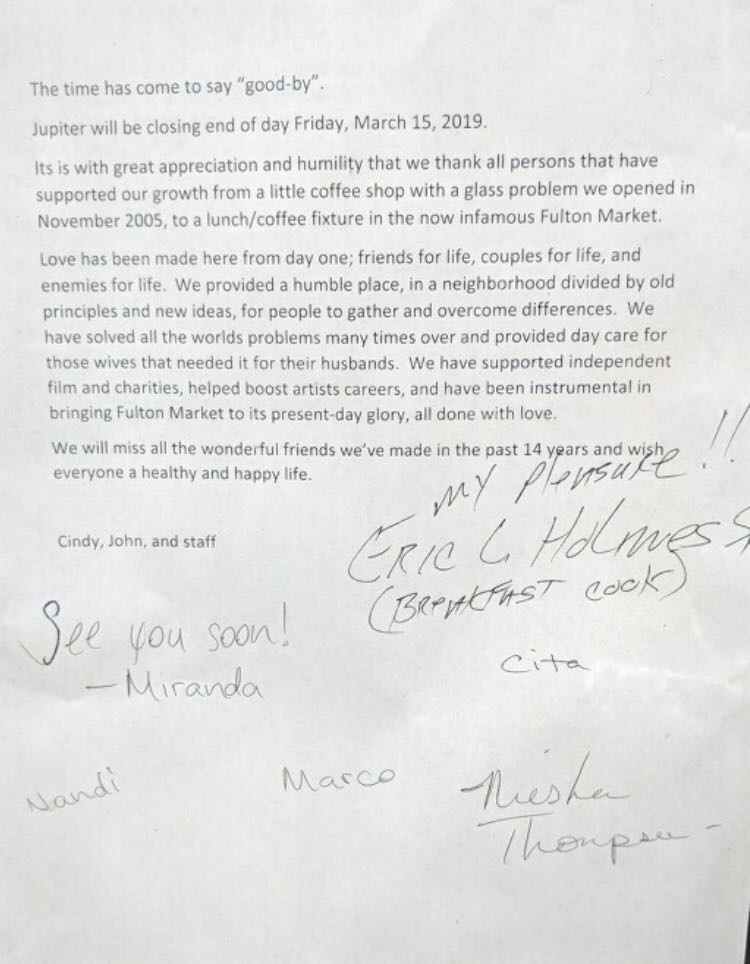 The time has come to say “good-by”.
Jupiter will be closing end of day Friday, March 15, 2019.
Its is with great appreciation and humility that we thank all persons that have
supported our growth from a little coffee shop with a glass problem we opened in
November 2005, to a lunch/coffee fixture in the now infamous Fulton Market.
Love has been made here from day one; friends for life, couples for life, and
enemies for life. We provided a humble place, in a neighborhood divided by old
principles and new ideas, for people to gather and overcome differences. We
have solved all the worlds problems many times over and provided day care for
those wives that needed it for their husbands. We have supported independent
film and charities, helped boost artists careers, and have been instrumental in
bringing Fulton Market to its present-day glory, all done with love.
We will miss all the wonderful friends we’ve made in the past 14 years and wish
everyone a healthy and happy life.
My pleasure!!
Cindy, John, and staff
Eric L Holmes
(Breakfast cook)
See you soon!
– Miranda
Cita
Nandi
Marco
Niesha
Thompson